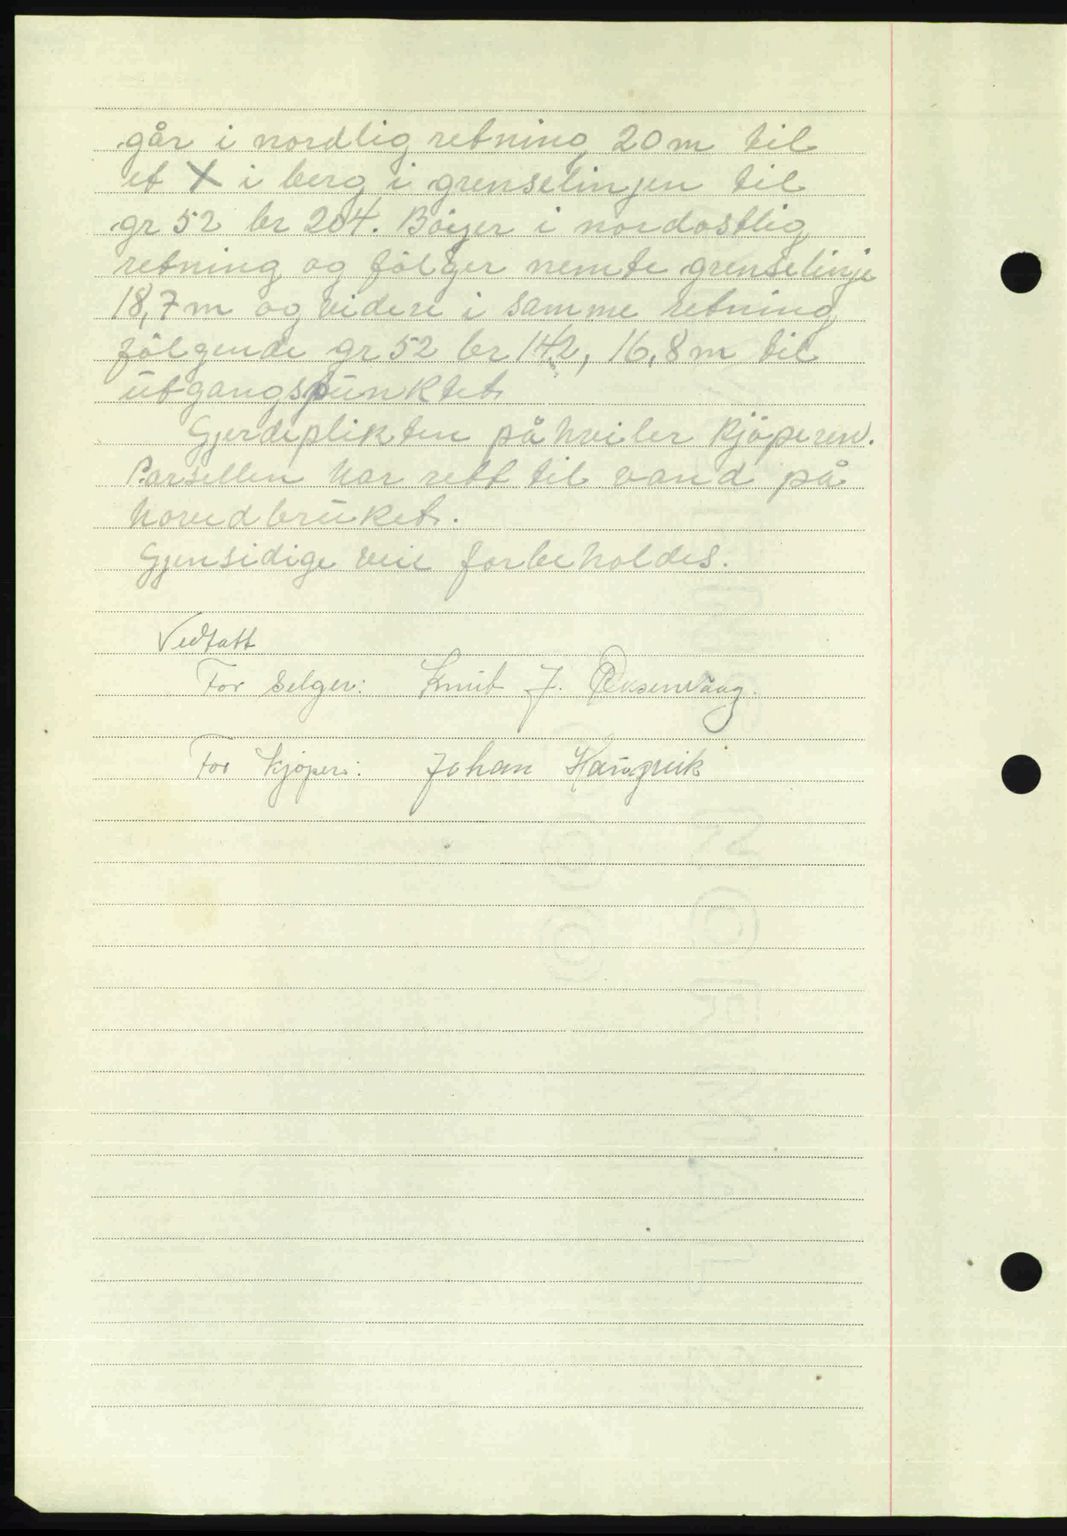 går i nordlig retning 20 m til
et X i berg i grenselinjen til
gr 52 br 204. Böyer i nordostlig
retning og fölger nemte grenselinje
18,7 m og videre i samme retning
fölgende gr 52 br 142, 16,8 m til
utgangspunktet.
Gjerdeplikten påhviler kjöperen.
Parsellen har rett til vand på
hovedbruket.
Gjensidige veie forbeholdes.
Vedtatt
For selger: Knut J. Øksenvåag.
For kjøper: Johan